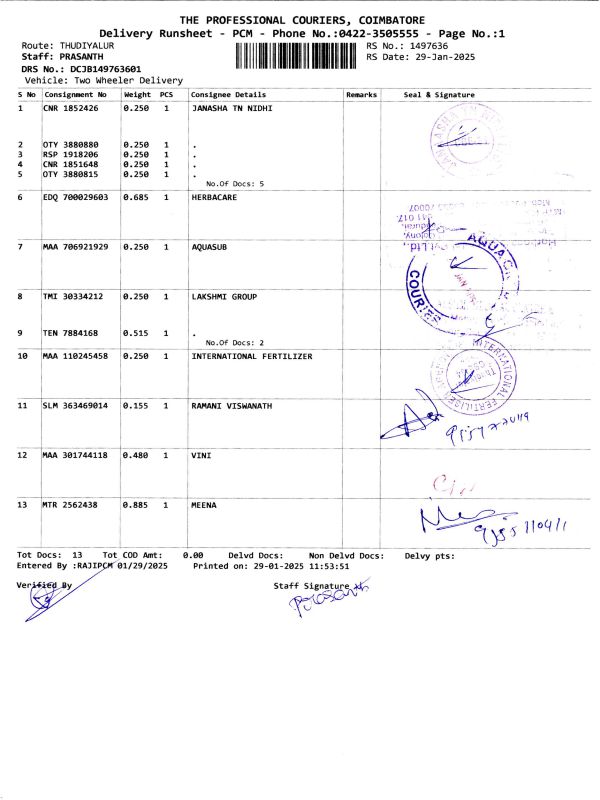 THE PROFESSIONAL COURIERS, COIMBATORE
Delivery Runsheet - PCM - Phone No.:0422-3505555 - Page No.:1
Route: THUDIYALUR RS No.: 1497636
Staff: PRASANTH RS Date: 29-Jan-2025
DRS No.: DCJB149763601
Vehicle: Two Wheeler Delivery
S No Consignment No Weight PCS Consignee Details Remarks Seal & Signature
1 CNR 1852426 0.250 1 JANASHA TN NIDHI
2 OTY 3880880 0.250 1 .
3 RSP 1918206 0.250 1 .
4 CNR 1851648 0.250 1 .
5 OTY 3880815 0.250 1 .
No.Of Docs: 5
6 EDQ 700029603 0.685 1 HERBACARE
7 MAA 706921929 0.250 1 AQUASUB
COURIER
8 TMI 30334212 0.250 1 LAKSHMI GROUP
9 TEN 7884168 0.515 1 .
No.Of Docs: 2
10 MAA 110245458 0.250 1 INTERNATIONAL FERTILIZER
INTERNATIONAL
11 SLM 363469014 0.155 1 RAMANI VISWANATH
12 MAA 301744118 0.480 1 VINI
13 MTR 2562438 0.885 1 MEENA
Tot Docs: 13 Tot COD Amt: 0.00 Delvd Docs: Non Delvd Docs: Delvy pts:
Entered By :RAJIPCM 01/29/2025 Printed on: 29-01-2025 11:53:51
Verified By Staff Signature
Prasanth